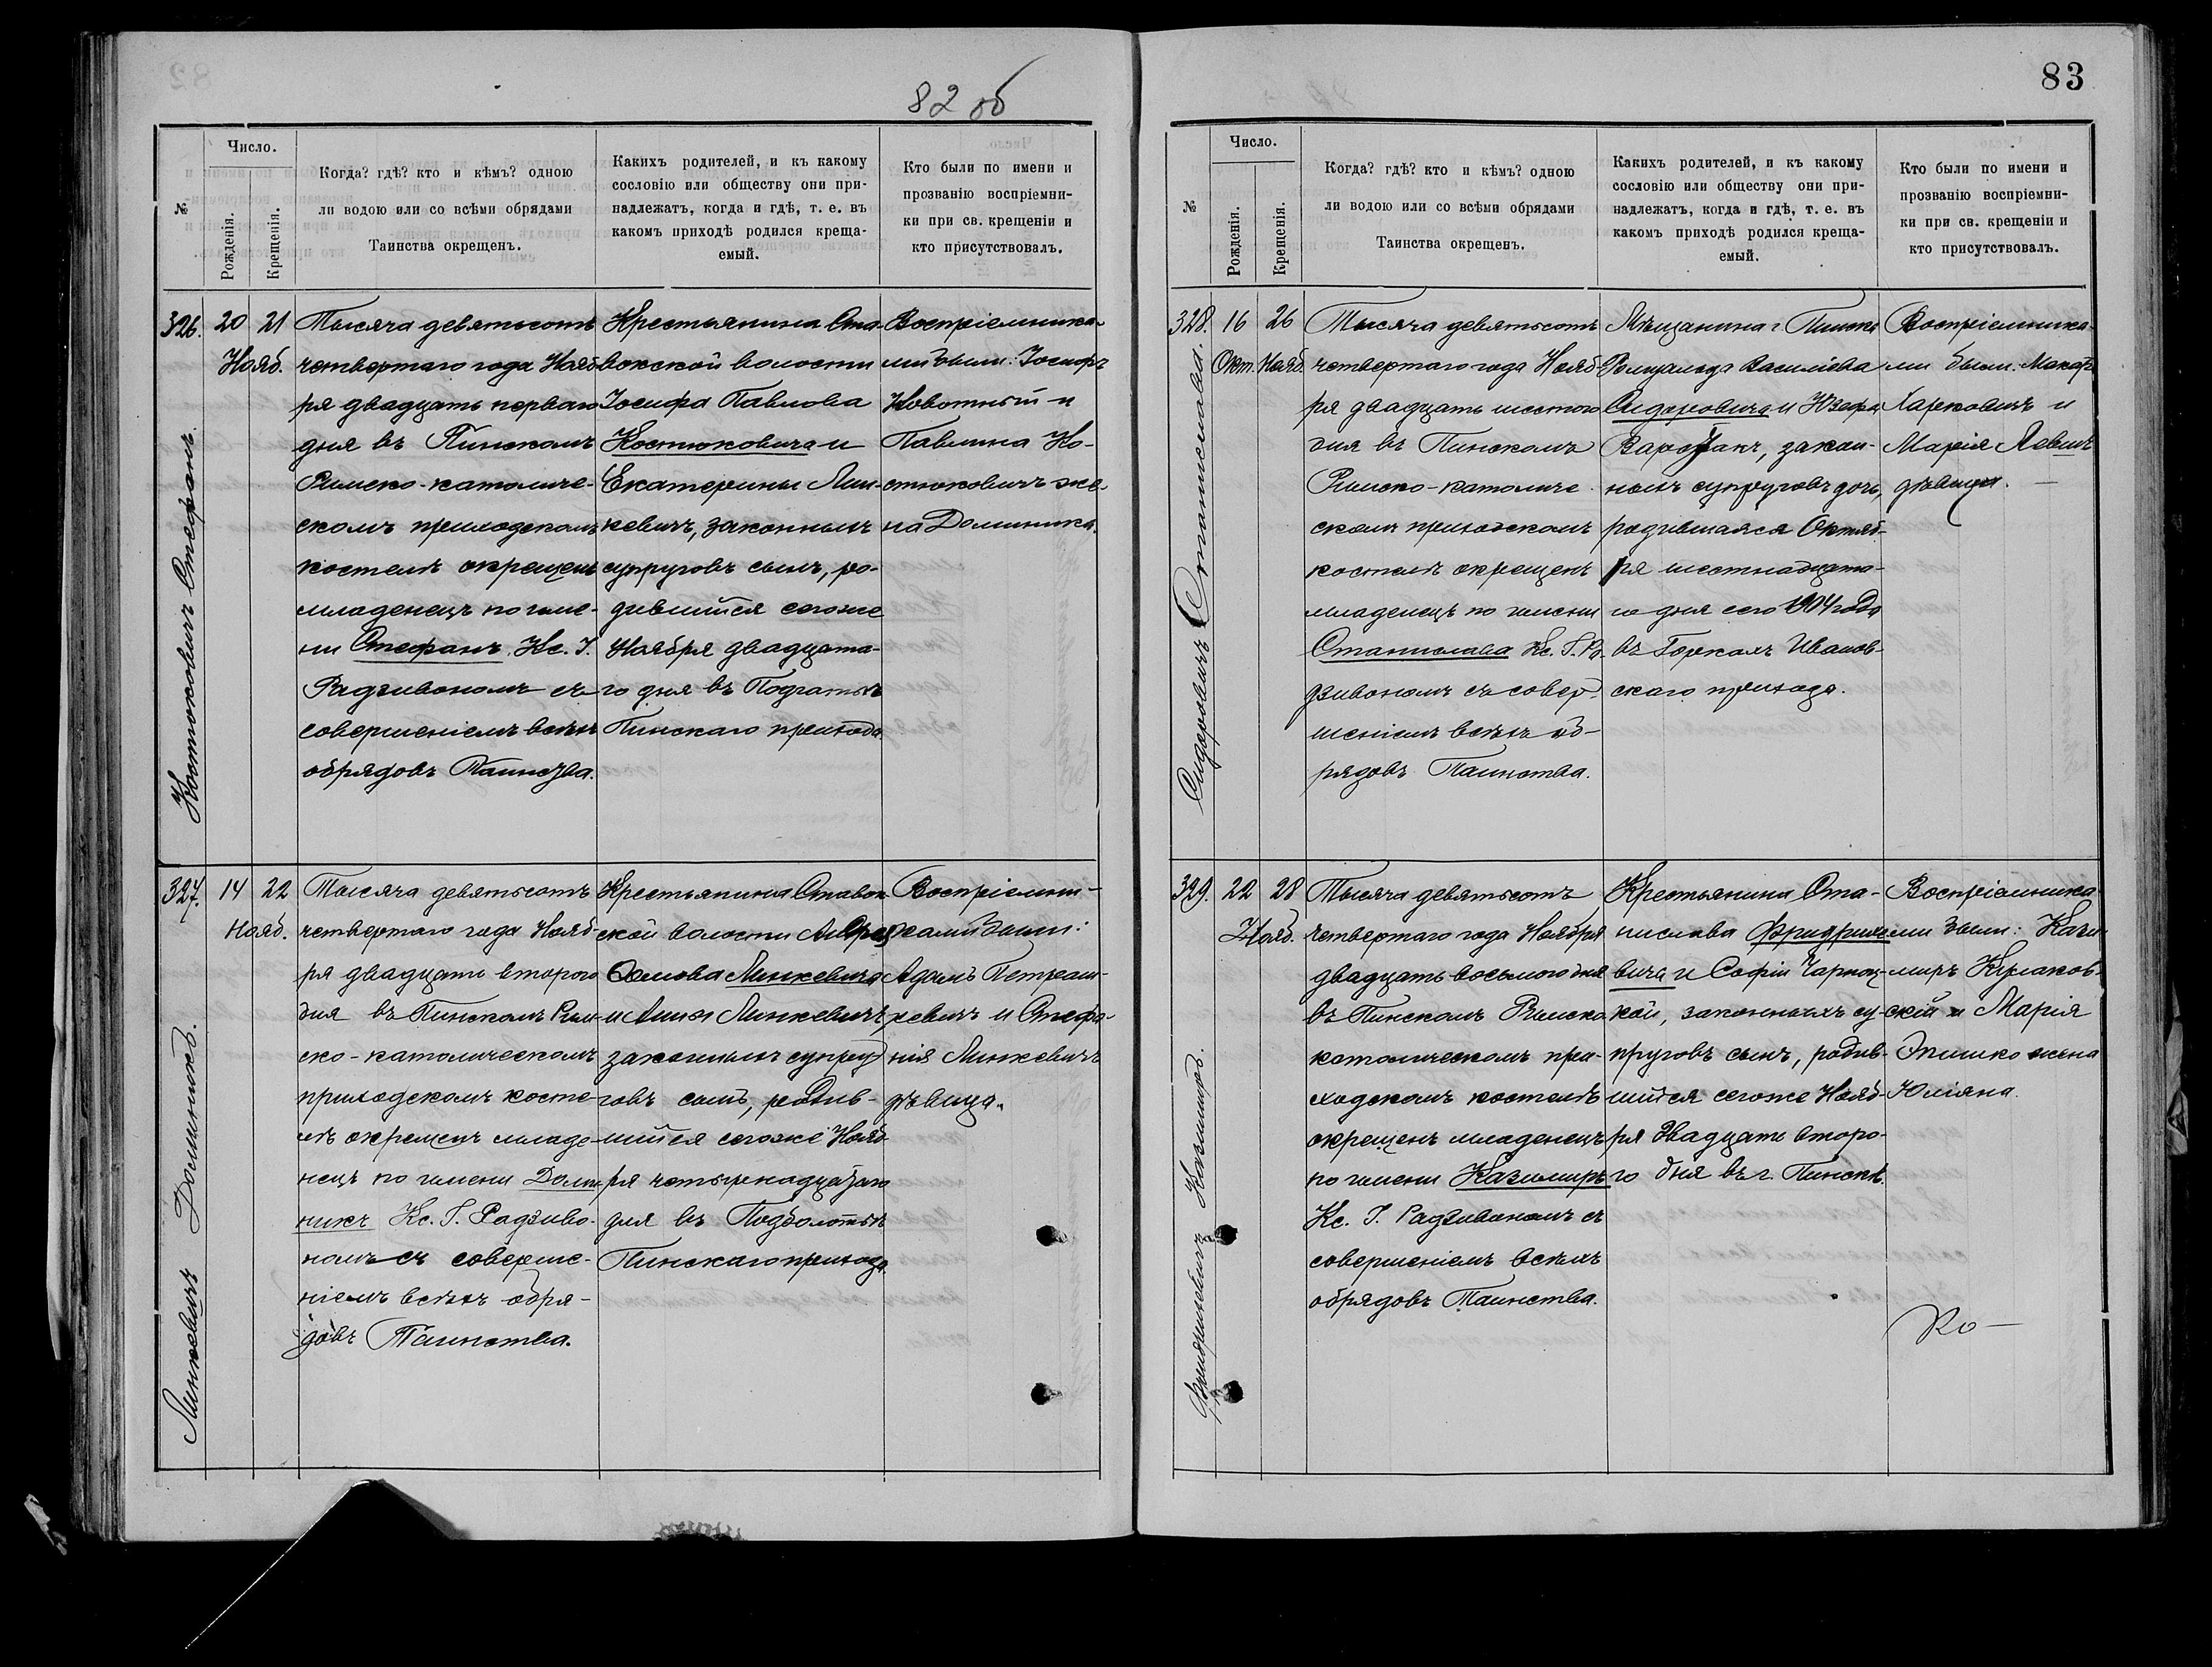 82 об
Число.
№
Рожденія.
Крещенія.
Когда? гдѣ? кто и кѣмъ? одною
ли водою или со всѣми обрядами
Таинства окрещенъ.
Какихъ родителей, и къ какому
сословію или обществу они при-
надлежатъ, когда и гдѣ, т. е. въ
какомъ приходѣ родился креща-
емый.
Кто были по имени и
прозванію воспріемни-
ки при св. крещеніи и
кто присутствовалъ.
326.
Костюковичъ Стефанъ.
20 21
Нояб.
Тысяча девятьсотъ
четвертаго года Нояб-
ря двадцать перваго
дня въ Пинскомъ
Римско-католиче-
скомъ приходскомъ
костелѣ окрещенъ
младенецъ по име-
ни Стефанъ. Кс. І.
Радзивономъ съ
совершеніемъ всѣхъ
обрядовъ Таинства.
Крестьянина Ста-
вокской волости
Іосифа Павлова
Костюковича и
Екатерины Лин-
кевичъ, законныхъ
супруговъ сынъ, ро-
дившійся сегоже
Ноября двадцата-
го дня въ
Пинскаго прихода
Воспріемника-
ми были: Іосифъ
Новотный и
Павлина Ко-
стюковичъ же-
на Доминика.
327.
Линкевичъ Доминикъ.
14 22
Нояб.
Тысяча девятьсотъ
четвертаго года Нояб-
ря двадцать второго
дня въ Пинскомъ Рим-
ско-католическомъ
приходскомъ косте-
лѣ окрещенъ младе-
нецъ по имени Доми-
никъ Кс. І. Радзиво-
номъ съ соверше-
ніемъ всѣхъ обря-
довъ Таинства.
Крестьянина Ставок-
ской волости
Линкевича
и Анны Линкевичъ
законныхъ супру-
говъ сынъ, родив-
шійся сегоже Нояб-
ря четырнадцатаго
дня въ Подболотьѣ
Пинскаго прихода.
Воспріемни-
ками были:
Адамъ Петраш-
кевичъ и Стефа-
нія Линкевичъ
дѣвица.
83
Число.
№
Рожденія.
Крещенія.
Когда? гдѣ? кто и кѣмъ? одною
ли водою или со всѣми обрядами
Таинства окрещенъ.
Какихъ родителей, и къ какому
сословію или обществу они при-
надлежатъ, когда и гдѣ, т. е. въ
какомъ приходѣ родился креща-
емый.
Кто были по имени и
прозванію воспріемни-
ки при св. крещеніи и
кто присутствовалъ.
328.
Сидоровичъ Станислава.
16 26
Окт. Нояб.
Тысяча девятьсотъ
четвертаго года Нояб-
ря двадцать шестого
дня въ Пинскомъ
Римско-католиче-
скомъ приходскомъ
костелѣ окрещенъ
младенецъ по имени
Станислава Кс. І. Ра-
дзивономъ съ совер-
шеніемъ всѣхъ об-
рядовъ Таинства.
Мѣщанина г. Пинска
Ромуальда Василіева
Сидоровича и Юзефы
закон-
ныхъ супруговъ дочь,
родившаяся Октяб-
ря шестнадцата-
го дня сего 1904 года
въ Горкахъ Иванов-
скаго прихода.
Воспріемника-
ми были: Макарь
Харковичъ и
Марія Левичъ
дѣвица.
329.
Фридрихевичъ Казимиръ.
22 28
Нояб.
Тысяча девятьсотъ
четвертаго года Ноября
двадцать восьмого дня
въ Пинскомъ Римско
католическомъ при-
ходскомъ костелѣ
окрещенъ младенецъ
по имени Казимиръ
Кс. І. Радзивономъ съ
совершеніемъ всѣхъ
обрядовъ Таинства.
Крестьянина Ста-
нислава Фридрихе-
вича и Софіи Чарноц-
кой, законныхъ су-
пруговъ сынъ, родив-
шійся сегоже Нояб-
ря двадцать второ-
го дня въ г. Пинскѣ.
Воспріемника-
ми были: Кази-
миръ Кулаков-
скій и Марія
Эпимко жена
Юліяна.
Ко-